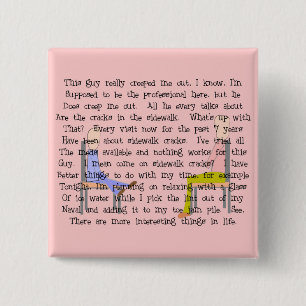 This guy really creeped me out. I know, I'm
Supposed to be the professional here, but he
Does creep me out. All he every talks about
Are the cracks in the sidewalk. What's up with
That? Every visit now for the past years
Have been about sidewalk cracks. I've tried all
The meds available and nothing works for this
Guy. I mean come on sidewalk cracks? have
Better things to do with my time, for example
Tonight, I'm planning on relaxing with a glass
Of ice water while I pick the lint out of my
Naval and adding it to my toe jam pile. See,
There are more interesting things in life.